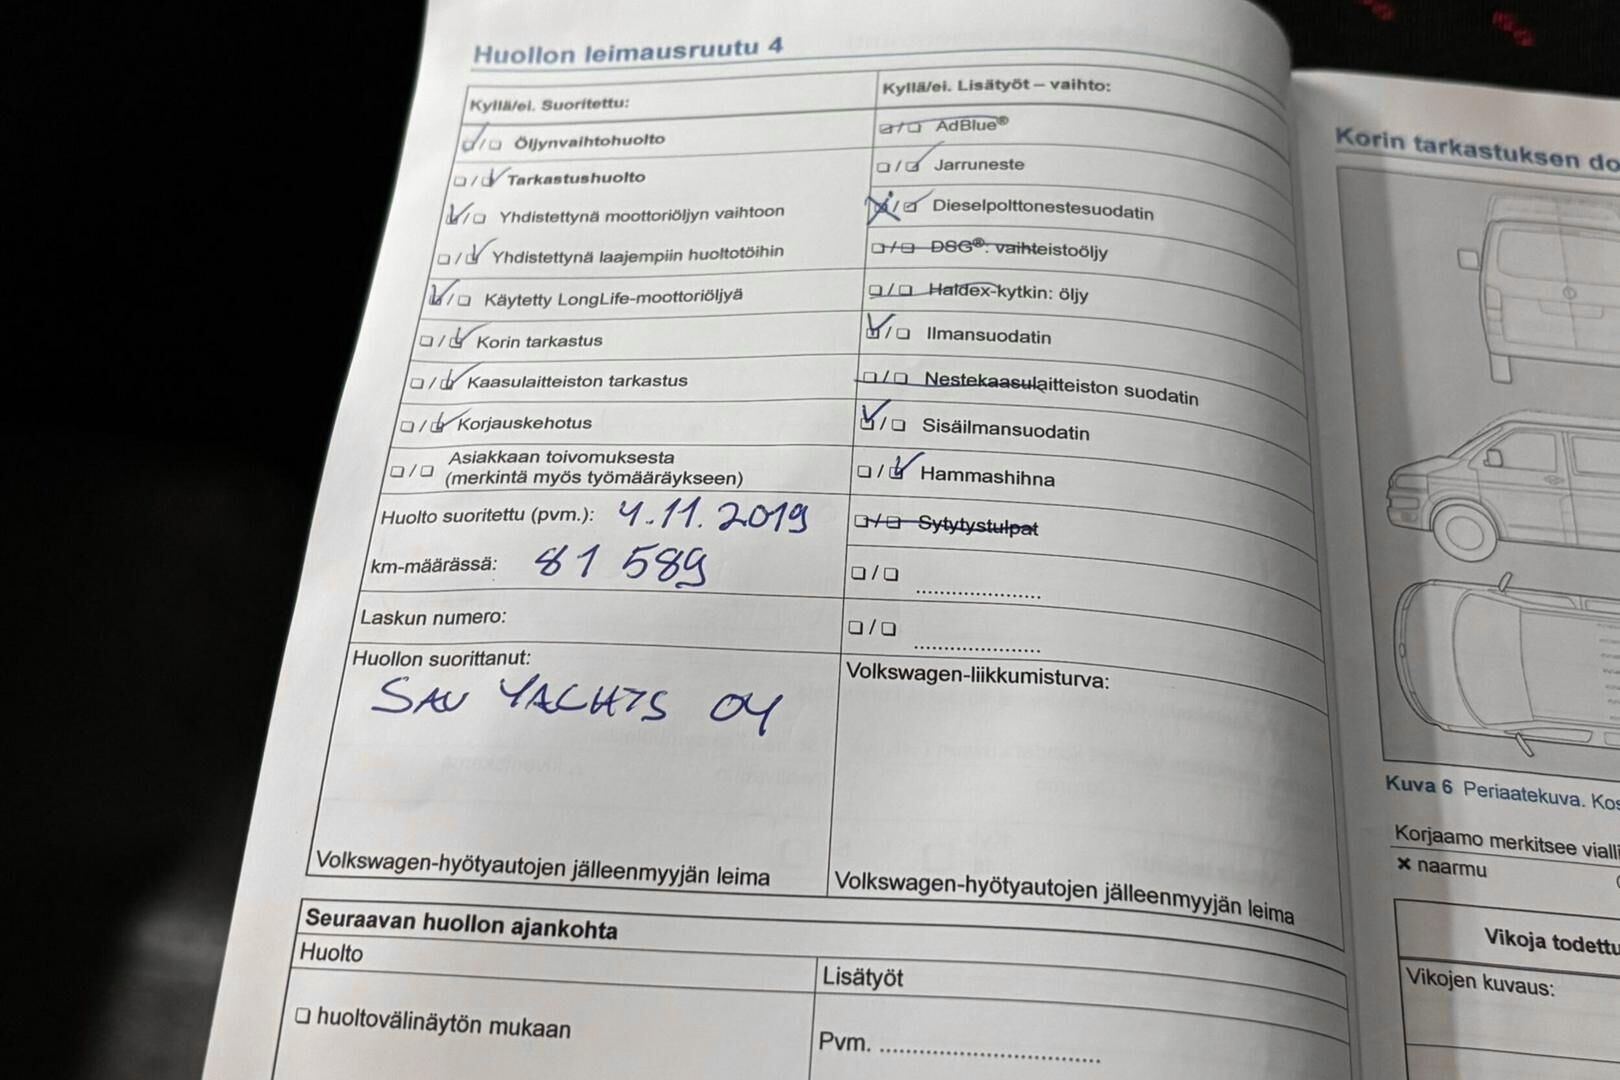 Huollon leimausruutu 4
Kyllä/ei. Suoritettu:
❑/❑ Öljynvaihtohuolto
❑/❑ Tarkastushuolto
❑/❑ Yhdistettynä moottoriöljyn vaihtoon
❑/❑ Yhdistettynä laajempiin huoltotöihin
❑/❑ Käytetty LongLife-moottoriöljyä
❑/❑ Korin tarkastus
❑/❑ Kaasulaitteiston tarkastus
❑/❑ Korjauskehotus
❑/❑ Asiakkaan toivomuksesta
(merkintä myös työmääräykseen)
Huolto suoritettu (pvm.): 4.11.2019
km-määrässä: 81 589
Laskun numero:
Huollon suorittanut:
YACHTS OY
Volkswagen-hyötyautojen jälleenmyyjän leima
Kyllä/ei. Lisätyöt – vaihto:
❑/❑ AdBlue®
❑/❑ Jarruneste
❑/❑ Dieselpolttonestesuodatin
❑/❑ DSG®: vaihteistoöljy
❑/❑ Haldex-kytkin: öljy
❑/❑ Ilmansuodatin
❑/❑ Nestekaasulaitteiston suodatin
❑/❑ Sisäilmansuodatin
❑/❑ Hammashihna
❑/❑ Sytytystulpat
❑/❑ ......................
❑/❑ ......................
Volkswagen-liikkumisturva:
Volkswagen-hyötyautojen jälleenmyyjän leima
Seuraavan huollon ajankohta
Huolto
❑ huoltovälinäytön mukaan
Lisätyöt
Pvm. ......................................
Korin tarkastuksen do
Kuva 6 Periaatekuva. Kos
Korjaamo merkitsee vialli
× naarmu
Vikoja todettu
Vikojen kuvaus: